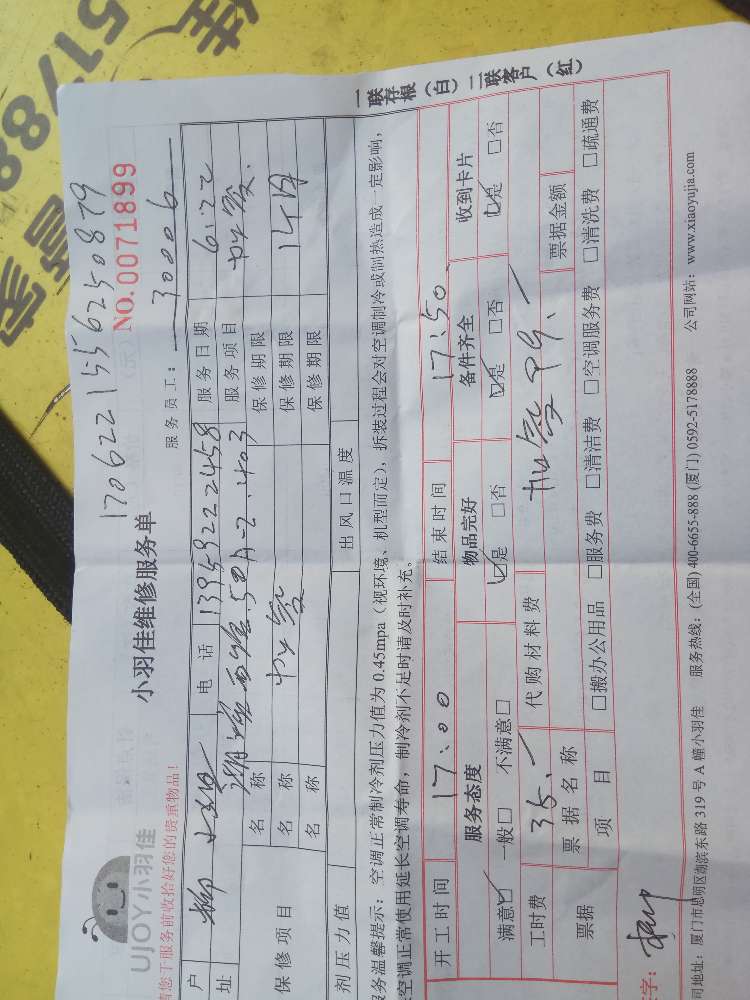 170622155625 0879
UJOY小羽佳
小羽佳维修服务单
NO.0071899
请您于服务前收拾好您的贵重物品!
服务员工: 30006
户 柳小姐 电话 13959222458 服务日期 6.22
址 50A-2.403 服务项目
名称 保修期限
保修项目 名称 保修期限 1年
名称 保修期限
剂压力值 出风口温度
服务温馨提示: 空调正常制冷剂压力值为 0.45mpa(视环境、机型而定),拆装过程会对空调制冷或制热造成一定影响,
空调正常使用延长空调寿命,制冷剂不足时请及时补充。
开工时间 17:00 结束时间 17:50
服务态度 物品完好 备件齐全 收到卡片
满意☑ 一般□ 不满意□ ☑是 □否 ☑是 □否 ☑是 □否
工时费 35. 代购材料费
票据 票据名称 票据金额
项目 □搬办公用品 □服务费 □清洁费 □空调服务费 □清洗费 □疏通费
字: 柳
司地址: 厦门市思明区湖滨东路 319 号 A 幢小羽佳 服务热线: (全国) 400-6655-888 (厦门) 0592-5178888 公司网站: www.xiaoyujia.com
一联存根(白) 二联客户(红)